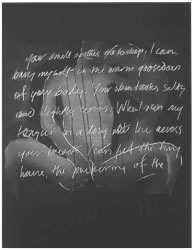 your smell in the
bury myself in the warm goosedown
of your body. Your skin tastes salty
and slightly When I run my
tongue in a long line across
your breast I can feel the tiny
hairs, the puckering of the